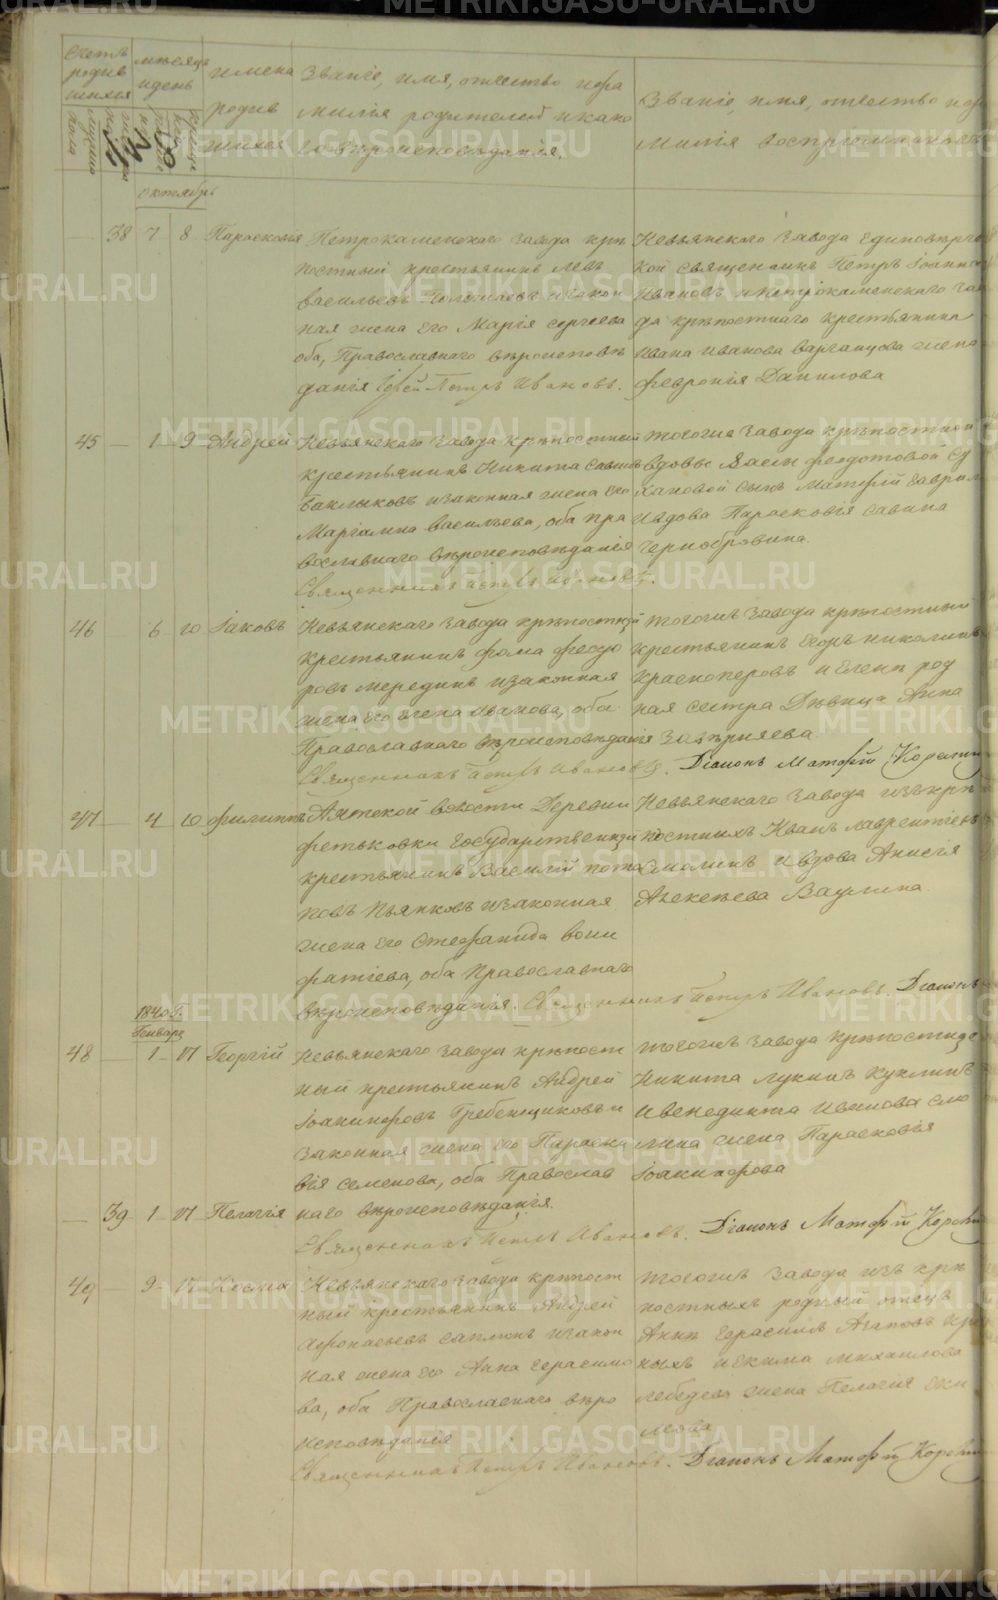 Счетъ родив шихся
мѣсяцъ и день
имена родив шихся
Званіе, имя, отчество и фа
милія родителей и како
го вѣроисповѣданія.
Званіе, имя, отчество и фа
милія воспріемниковъ
Октябрь
38 7 8 Параскевія
Петрокаменскаго завода крѣ
постный крестьянинъ Левъ
Васильевъ и закон
ная жена его Марія Сергеева
оба, Православнаго вѣроисповѣ
данія Іерей Петръ Ивановъ.
Невьянскаго завода Единовѣрче
кой священникъ Петръ Іоанно
Ивановъ и Петрокаменскаго заво
да крѣпостнаго крестьянина
Ивана Иванова жена
Февронія Данилова
45 1 9 Андрей
Невьянскаго завода крѣпостный
крестьянинъ Никита Савинъ
Баклыковъ и законная жена его
Маріамна Васильева, оба пра
вославнаго вѣроисповѣданія
Священникъ Петръ Ивановъ.
того же завода крѣпостной
вдовы Феодотовой Су
хановой сынъ Матфей Гаврил
и вдова Параскевія Савина
Чернобровина.
46 6 10 Іаковъ
Невьянскаго завода крѣпостный
крестьянинъ Фома Феодо
ровъ Мерединъ и законная
жена его Елена Иванова, оба
Православнаго вѣроисповѣданія
Священникъ Петръ Ивановъ. Діаконъ Матфей Корепин
тогожъ завода крѣпостный
крестьянинъ Егоръ Николинъ
Красноперовъ и Елены род
ная сестра Дѣвица Анна
47 4 10 Филиппъ
Аятской волости Деревни
Фетьковки Государственный
крестьянинъ Василій Пота
повъ Пьянковъ и законная
жена его Стефанида Вони
фатіева, оба Православнаго
вѣроисповѣданія. Священникъ Петръ Ивановъ. Діаконъ
Невьянскаго завода изъ крѣ
постныхъ Иванъ Лаврентіевъ
Смолинъ и вдова Анисія
Алексѣева Ваулина.
1840 г.
Генваря
48 1 17 Георгій
Невьянскаго завода крѣпост
ный крестьянинъ Андрей
Іоакинфовъ Гребенщиковъ и
законная жена его Параске
вія Семенова, оба Православ
наго вѣроисповѣданія.
тогожъ завода крѣпостные
Никита Лукинъ Куклинъ
и Венедикта Иванова Смо
лина жена Параскевія
Іоакинфова
39 1 17 Пелагія
Священникъ Петръ Ивановъ. Діаконъ Матфей Корепин
49 9 17 Косма
Невьянскаго завода крѣпост
ный крестьянинъ Андрей
Афонасьевъ Саплинъ и закон
ная жена его Анна Герасимо
ва, оба Православнаго вѣро
исповѣданія
Священникъ Петръ Ивановъ. Діаконъ Матфей Корепин
тогожъ завода изъ крѣ
постныхъ родный отецъ
Анны Герасимъ Агаповъ
ныхъ и Екима Михаилова
Лебедева жена Пелагія Еки
мова
METRIKI.GASO-URAL.RU